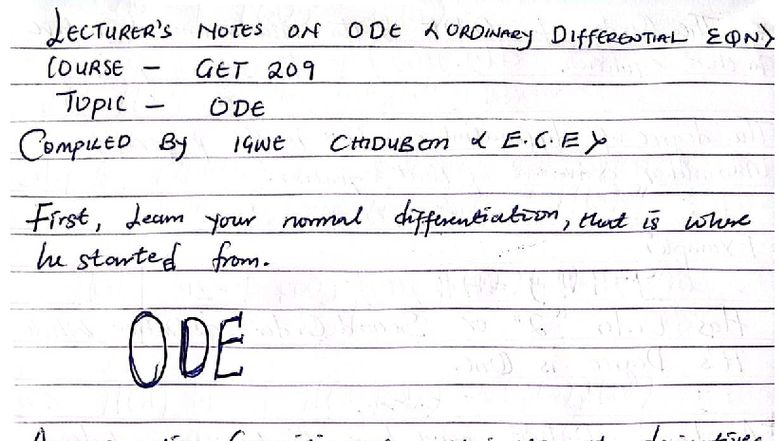 LECTURER'S NOTES ON ODE <ORDINARY DIFFERENTIAL EQN>
COURSE - GET 209
TOPIC - ODE
COMPILED BY IGWE CHIDUBEM <E.C.E>
First, learn your normal differentiation, that is where
he started from.
ODE
derivatives